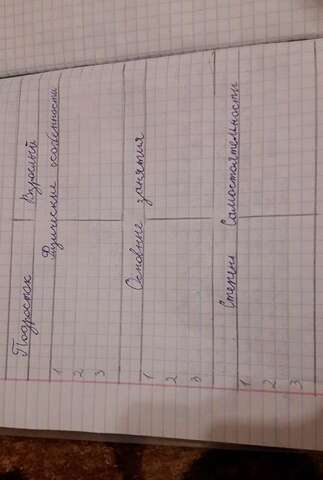 Подросток Взрослый
Физические особенности
1
2
3
Основные занятия
1
2
3
Степень Самостоятельности
1
2
3